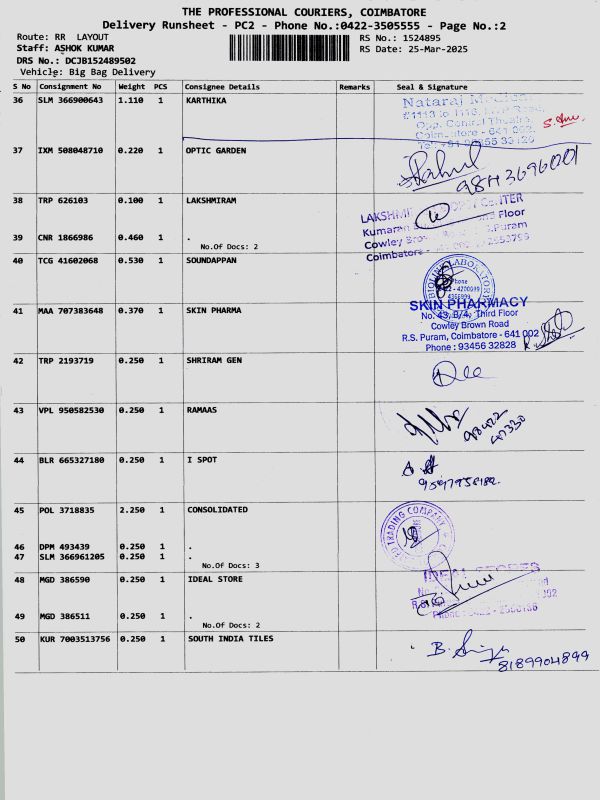 THE PROFESSIONAL COURIERS, COIMBATORE
Delivery Runsheet - PC2 - Phone No.:0422-3505555 - Page No.:2
Route: RR LAYOUT
RS No.: 1524895
Staff: ASHOK KUMAR
RS Date: 25-Mar-2025
DRS No.: DCJB152489502
Vehicle: Big Bag Delivery
S No Consignment No Weight PCS Consignee Details Remarks Seal & Signature
36 SLM 366900643 1.110 1 KARTHIKA
Nataraj
Opp. Central Theatre,
Coimbatore - 641 002.
37 IXM 508048710 0.220 1 OPTIC GARDEN
Rahul
9843696001
38 TRP 626103 0.100 1 LAKSHMIRAM
LAKSHMI CENTER
Kumaran Floor
39 CNR 1866986 0.460 1 .
Cowley Brown Puram
No.Of Docs: 2
Coimbatore
40 TCG 41602068 0.530 1 SOUNDAPPAN
LABORATORY
Phone
41 MAA 707383648 0.370 1 SKIN PHARMA
SKIN PHARMACY
No. 43, B/4, Third Floor
Cowley Brown Road
R.S. Puram, Coimbatore - 641 002
Phone : 93456 32828
42 TRP 2193719 0.250 1 SHRIRAM GEN
43 VPL 950582530 0.250 1 RAMAAS
98422
47330
44 BLR 665327180 0.250 1 I SPOT
45 POL 3718835 2.250 1 CONSOLIDATED
TRADING COMPANY
46 DPM 493439 0.250 1 .
47 SLM 366961205 0.250 1 .
No.Of Docs: 3
48 MGD 386590 0.250 1 IDEAL STORE
49 MGD 386511 0.250 1 .
No.Of Docs: 2
50 KUR 7003513756 0.250 1 SOUTH INDIA TILES
8189904899